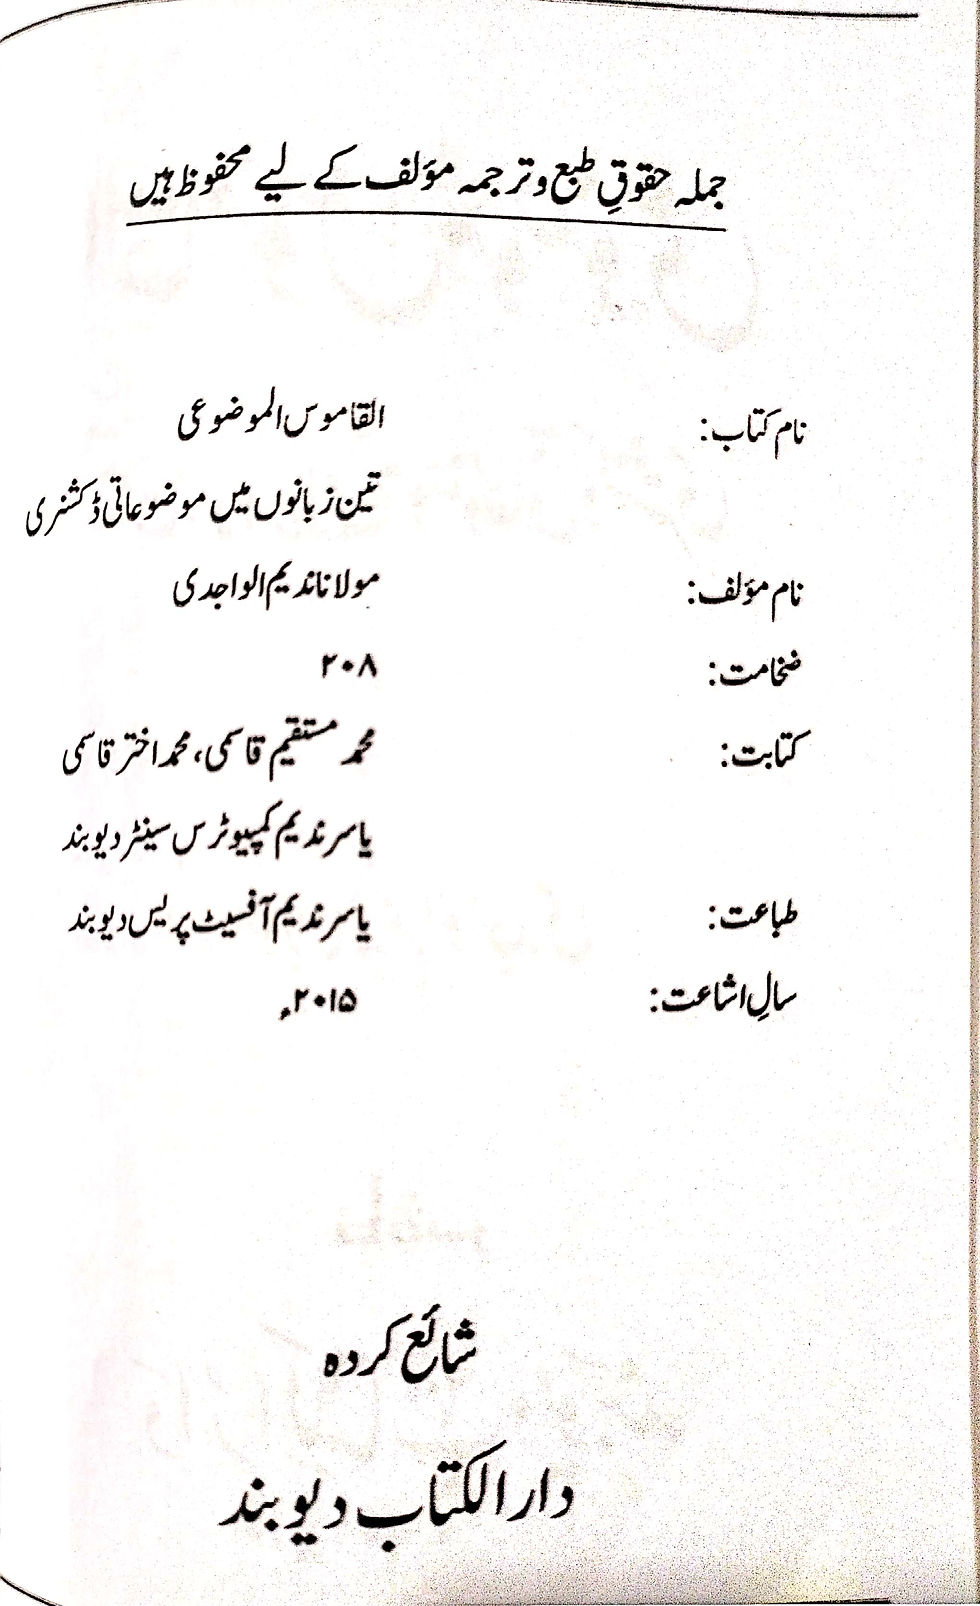 جملہ حقوقِ طبع و ترجمہ مؤلف کے لیے محفوظ ہیں
نام کتاب: القاموس الموضوعی
تین زبانوں میں موضوعاتی ڈکشنری
نام مؤلف: مولانا ندیم الواجدی
ضخامت: ۲۰۸
کتابت: محمد مستقیم قاسمی، محمد اختر قاسمی
یاسر ندیم کمپیوٹرس سینٹر دیوبند
طباعت: یاسر ندیم آفسیٹ پریس دیوبند
سالِ اشاعت: ۲۰۱۵ء
شائع کردہ
دار الکتاب دیوبند